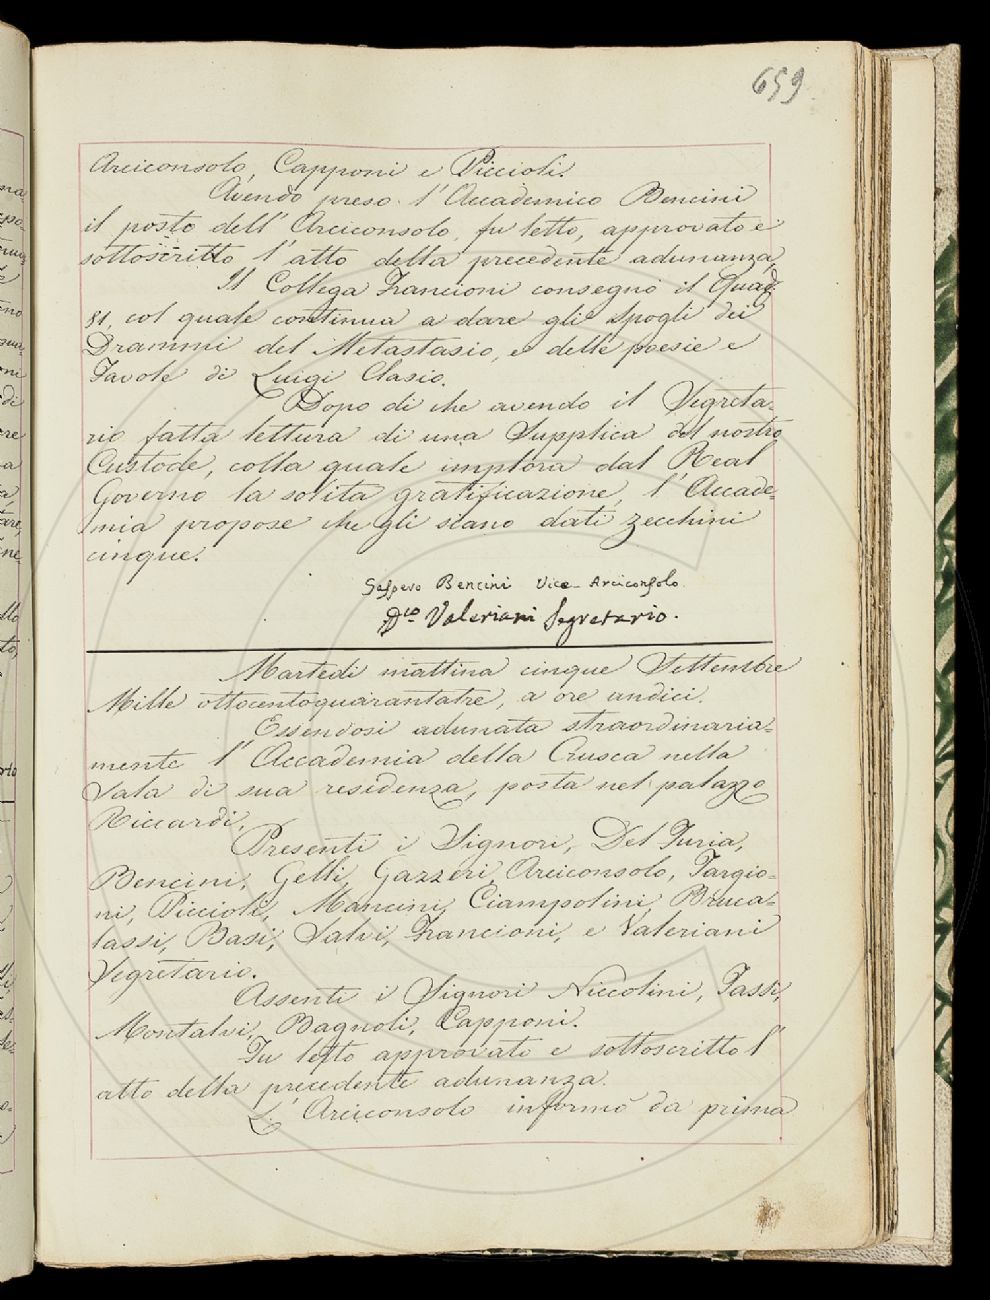 659
Arciconsolo, Capponi e Piccioli.
Avendo preso l'Accademico Bencini
il posto dell'Arciconsolo, fu letto, approvato e
sottoscritto l'atto della precedente adunanza.
Il Collega Francioni consegnò il Quad.
81, col quale continua a dare gli Spogli dei
Drammi del Metastasio, e delle poesie e
Favole di Luigi Clasio.
Dopo di che avendo il Segreta-
rio fatta lettura di una Supplica del nostro
Custode, colla quale implora dal Real
Governo la solita gratificazione, l'Accade-
mia propose che gli siano dati zecchini
cinque.
Gaspero Bencini Vice-Arciconsolo.
Valeriani Segretario.
Martedi mattina cinque Settembre
Mille ottocentoquarantatre, a ore undici.
Essendosi adunata straordinaria-
mente l'Accademia della Crusca nella
Sala di sua residenza, posta nel palazzo
Riccardi,
Presenti i Signori, Del Furia,
Bencini, Gelli, Gazzeri Arciconsolo, Targio-
ni, Piccioli, Mancini, Ciampolini, Bruca-
lassi, Basi, Salvi, Francioni, e Valeriani
Segretario.
Assenti i Signori Niccolini, Tassi,
Montalvi, Bagnoli, Capponi.
Fu letto approvato e sottoscritto l'
atto della precedente adunanza.
L'Arciconsolo informò da prima